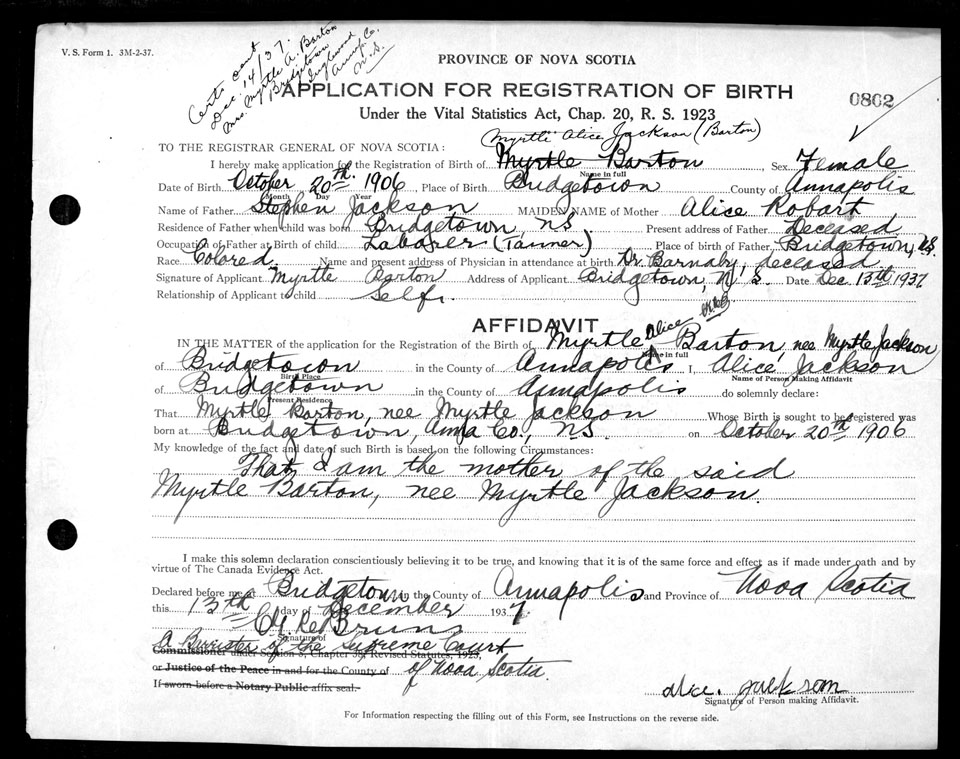 V. S. Form 1. 3M-2-37.
Certs sent
Dec. 14/37.
Mrs. Myrtle A. Barton
Bridgetown
Inglewood
Annap. Co.
N.S.
PROVINCE OF NOVA SCOTIA
APPLICATION FOR REGISTRATION OF BIRTH
0802
Under the Vital Statistics Act, Chap. 20, R. S. 1923
Myrtle Alice Jackson (Barton)
TO THE REGISTRAR GENERAL OF NOVA SCOTIA:
I hereby make application for the Registration of Birth of Myrtle Barton Sex Female
Name in full
Date of Birth October 20th. 1906, Place of Birth Bridgetown County of Annapolis
Month Day Year
Name of Father Stephen Jackson MAIDEN NAME of Mother Alice Robart
Residence of Father when child was born Bridgetown, N.S. Present address of Father Deceased
Occupation of Father at Birth of child Laborer (Tanner) Place of birth of Father, Bridgetown, N.S.
Race Colored. Name and present address of Physician in attendance at birth Dr. Barnaby, deceased
Signature of Applicant Myrtle Barton Address of Applicant Bridgetown, N.S. Date Dec 13th 1937
Relationship of Applicant to child Self.
AFFIDAVIT
Alice
IN THE MATTER of the application for the Registration of the Birth of Myrtle Barton, nee Myrtle Jackson
Name in full
of Bridgetown in the County of Annapolis I, Alice Jackson
Birth Place Name of Person Making Affidavit
of Bridgetown in the County of Annapolis do solemnly declare:
Present Residence
That Myrtle Barton, nee Myrtle Jackson Whose Birth is sought to be registered was
born at Bridgetown, Anna Co., N.S. on October 20th 1906
My knowledge of the fact and date of such Birth is based on the following Circumstances:
That I am the mother of the said
Myrtle Barton, nee Myrtle Jackson.
I make this solemn declaration conscientiously believing it to be true, and knowing that it is of the same force and effect as if made under oath and by
virtue of The Canada Evidence Act.
Declared before me at Bridgetown in the County of Annapolis and Province of Nova Scotia
this 13th day of December 1937.
Signature of
A Barrister of the Supreme Court
Commissioner under Section 8, Chapter 38, Revised Statutes, 1923,
or Justice of the Peace in and for the County of of Nova Scotia.
If sworn before a Notary Public affix seal.
alice. jackson
Signature of Person making Affidavit.
For Information respecting the filling out of this Form, see Instructions on the reverse side.